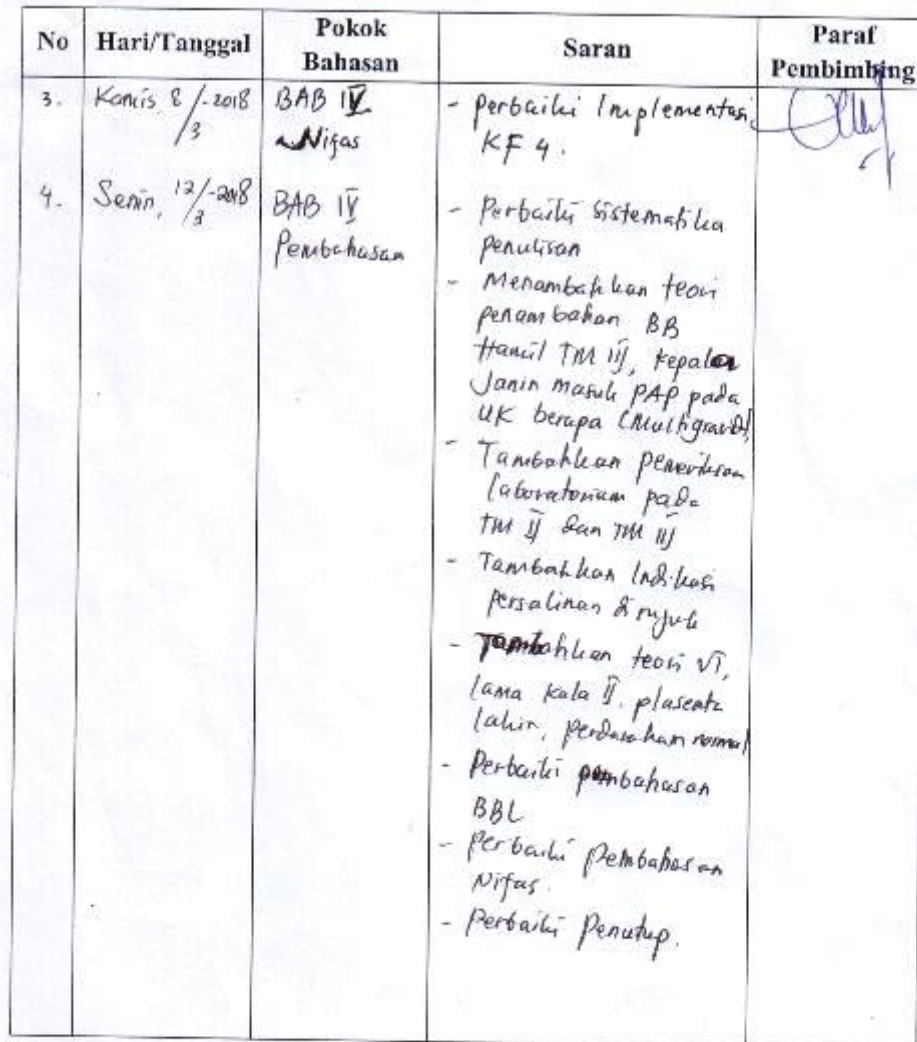 No Hari/Tanggal Pokok Bahasan Saran Paraf Pembimbing
3. Kamis 8/3-2018 BAB IV - perbaiki Implementasi
Nifas KF 4.
4. Senin, 12/3-2018 BAB IV - Perbaiki sistematika
Pembahasan penulisan
- Menambahkan teori
penambahan BB
Hamil TM III, kepala
Janin masuk PAP pada
UK berapa (Multigravid)
- Tambahkan pemeriksaan
laboratorium pada
TM II dan TM III
- Tambahkan Indikasi
persalinan di rujuk
- Tambahkan teori VT,
lama kala II, plasenta
lahir, perdarahan normal
- Perbaiki pembahasan
BBL
- Perbaiki Pembahasan
Nifas.
- Perbaiki Penutup.